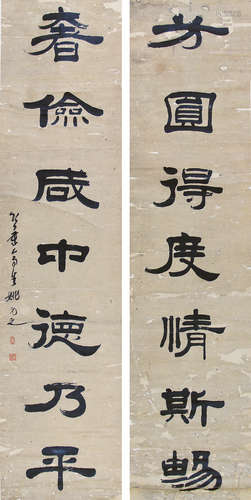 方圓得度情斯暢
奢儉咸中德乃平
姚元之